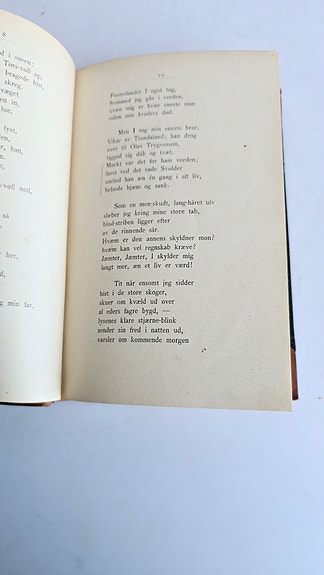 8.
d i sneen;
Tørs-voll op,
bragede hus,
skreg.
væget
en in,
ue,
lyst,
dt,
s-voll ned,
så
her,
g min far.
19
Fosterlandet I også tog,
fremmed jeg går i verden,
uvæn mig er hvær eneste mon
siden min broders død.
Men I tog min eneste bror,
Vikar av Tiundaland; han drog
over til Olav Trygvesson,
tigged sig dåb og tvæt.
Mørkt var det før ham verden;
tert ved det røde Svolder
smiled han æn én gang i sit liv,
helsede hjæm og sank.
Som en men-skudt, lang-håret ulv
slæber jeg kring mine store tab,
blod-striben ligger efter
av de rinnende sår.
Hvæm er den annens skyldner mon?
hvæm kan vel regnskab kræve?
Jæmter, Jæmter, I skylder mig
langt mer, æn et liv er værd!
Tit når ensomt jeg sidder
hist i de store skoger,
skuer om kvæld ud over
af eders fagre bygd, —
lysenes klare stjærne-blink
sender sin fred i natten ud,
varsler om kommende morgen
2*